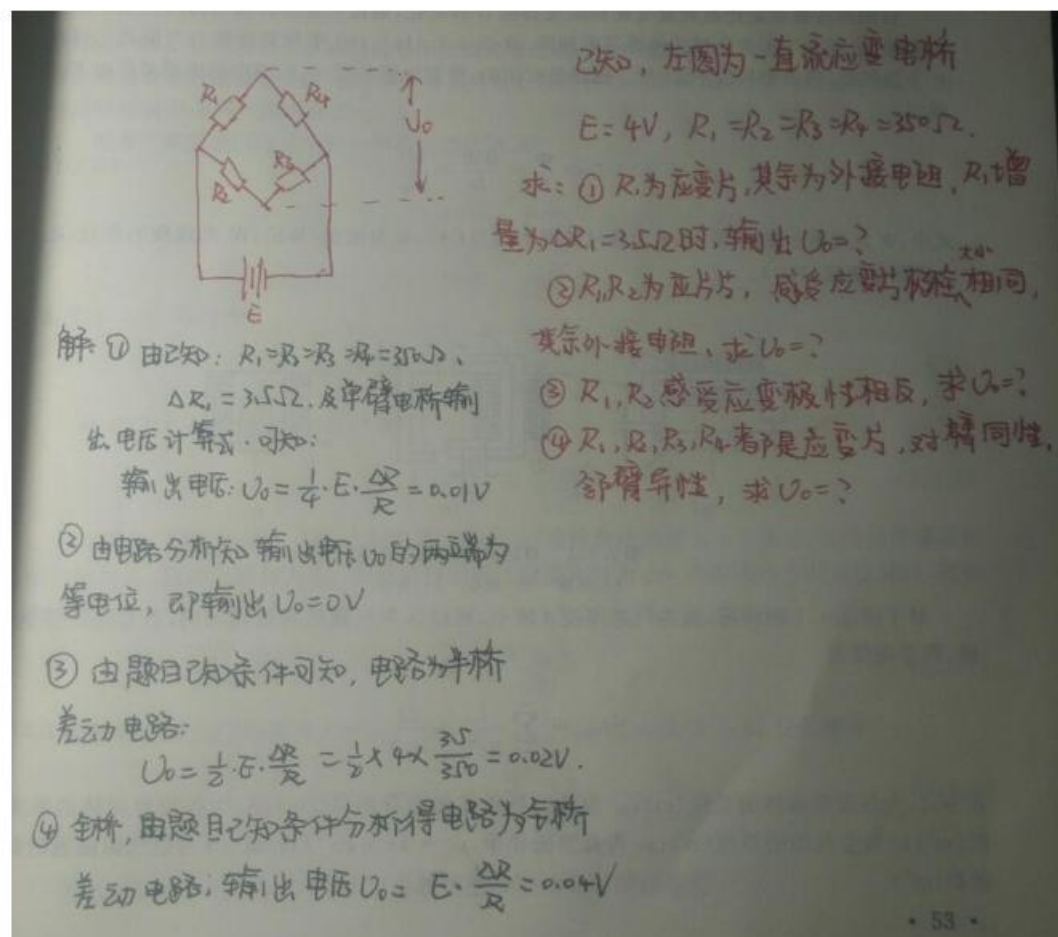 已知，左图为一直流应变电桥
E=4V, R₁=R₂=R₃=R₄=350Ω.
求：① R₁为应变片，其余为外接电阻，R₁增
量为ΔR₁=3.5Ω时，输出U₀=?
② R₁R₂为应片片，感受应变大小相同，
其余外接电阻，求U₀=?
③ R₁,R₂感受应变极性相反，求U₀=?
④ R₁,R₂,R₃,R₄都是应变片，对臂同性，
邻臂异性，求U₀=?
R₁
R₄
U₀
R₂
R₃
E
解：① 由已知：R₁=R₂=R₃=R₄=350Ω、
ΔR₁=3.5Ω.及单臂电桥输
出电压计算式.可知：
输出电压：U₀=1/4·E·ΔR/R=0.01V
② 由电路分析知输出电压U₀的两端为
等电位，即输出U₀=0V
③ 由题目已知条件可知，电路为半桥
差动电路：
U₀=1/2·E·ΔR/R=1/2×4×3.5/350=0.02V.
④ 全桥，由题目已知条件分析得电路为全桥
差动电路，输出电压U₀=E·ΔR/R=0.04V
·53·